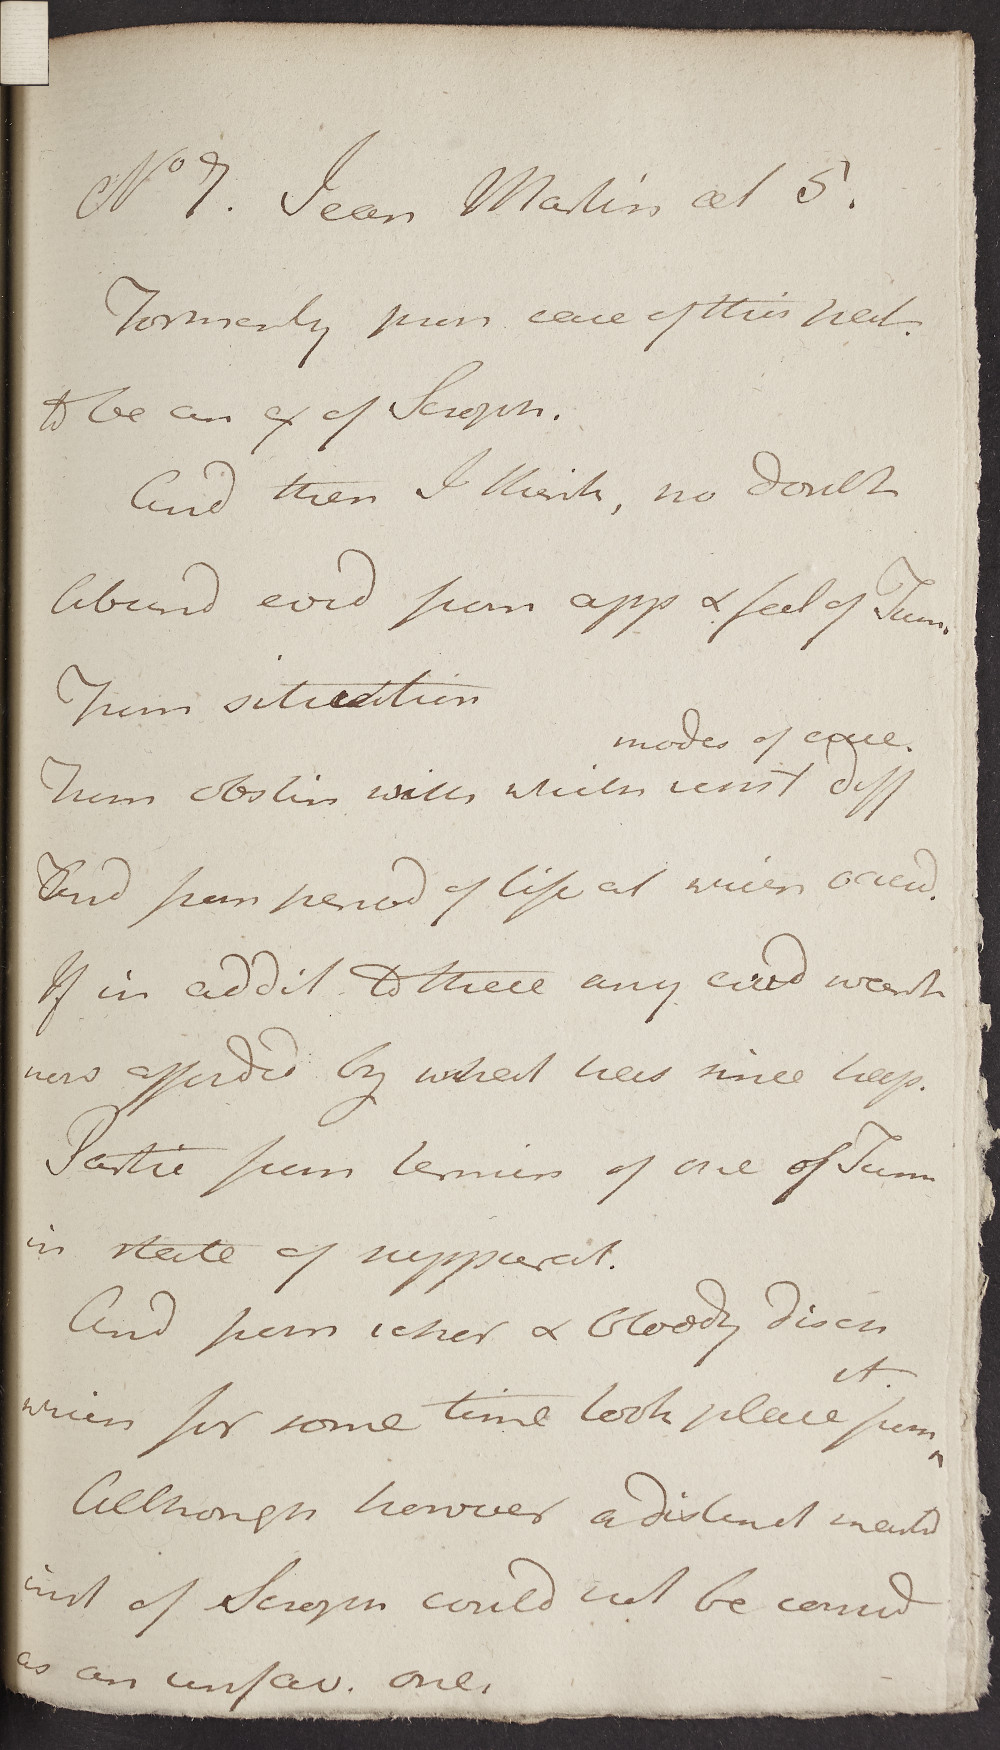 No 7. Jean Martin aet 5.
Formerly pron case of this pat.
to be an ex of Scroph.
And then I think, no doubt
Abund evid from app & feel of Tum.
From situation
From obstin with which resist diff modes of cure.
And from period of life at which occurd.
If in addit to these any evid want
now afforded by what has since hap.
Partic from termin of one of Tum
in state of suppurat.
And from ichor & bloody disch
which for some time took place from it.
Although however a distinct markd
inst of Scroph could not be considd
as an unfav. one.